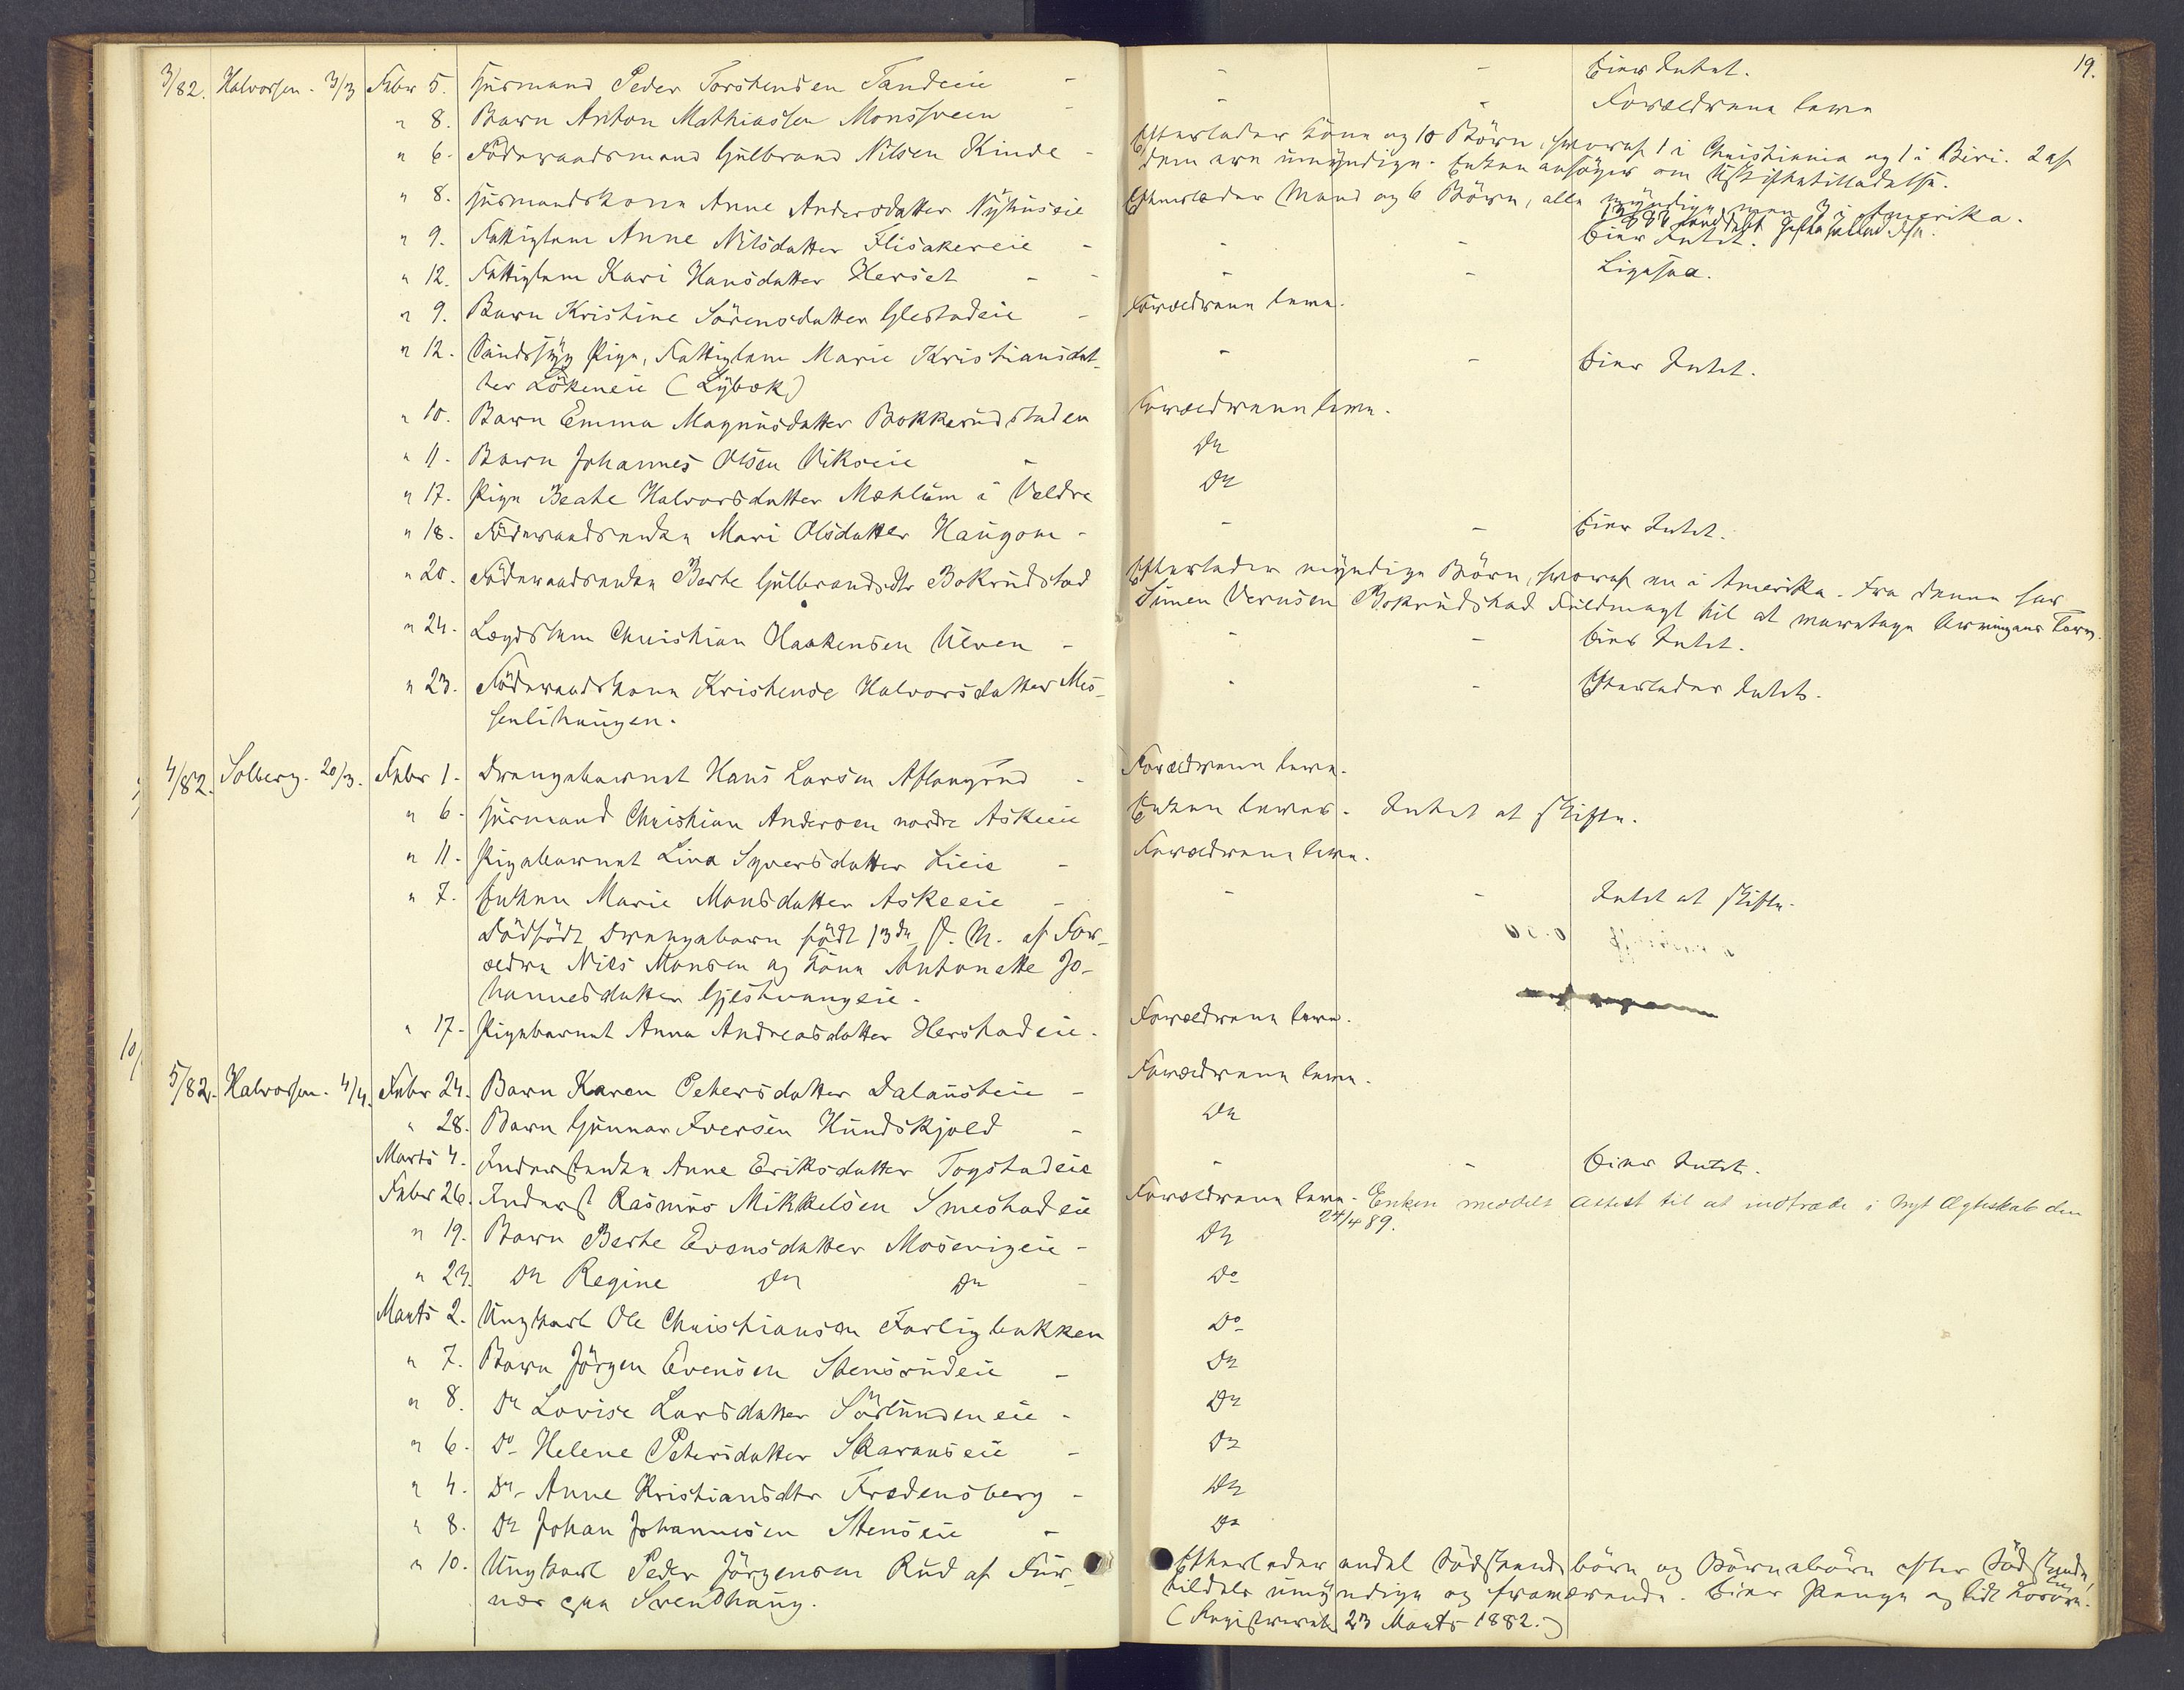 19.
3/82. Halvorsen. 3/3 Febr 5. Husmand Peder Torstensen Tandeie - - - Eier Intet.
" 8. Barn Anton Mathiassen Monssveen - - - Forældrene leve
" 6. Föderaadsmand Gulbrand Nilsen Kinde - Efterlader Kone og 10 Börn, hvoraf 1 i Christiania og 1 i Biri. 2 af
dem ere umyndige. Enken ansöger om Uskiftetilladelse.
" 8. Husmandskone Anne Andersdatter Nyhuseie Efterlader Mand og 6 Börn, alle myndige, men 3 i Amerika.
" 9. Fattiglem Anne Nilsdatter Flisakereie - - - Eier Intet.
" 12. Fattiglem Kari Hansdatter Herset - - - - Ligesaa.
" 9. Barn Kristine Sörensdatter Glestadeie - Forældrene leve.
" 12. Sindssyg Pige, Fattiglem Marie Kristiansdat- - - Eier Intet.
ter Lökeneie (Lybæk)
" 10. Barn Emma Magnusdatter Bokkerudstaden Forældrene leve.
" 11. Barn Johannes Olsen Vikseie - Do
" 17. Pige Beate Halvorsdatter Mæhlum i Veldre Do
" 18. Föderaadsenken Mari Olsdatter Haugom - - - Eier Intet.
" 20. Föderaadsenken Berte Gulbrandsdtr Bokrudstad Efterlader myndige Börn, hvoraf en i Amerika. Fra denne har
Simen Bokrudstad Fuldmagt til at modtage Arvingens Tarv.
" 24. Lægdslem Christian Haakensen Ulven - - - Eier Intet.
" 23. Föderaadskone Kristense Halvorsdatter Mes- - - Efterlader Intet.
senlihaugen.
4/82. Solberg. 20/3. Febr 1. Drengebarnet Hans Larsen Aflangrud - Forældrene leve.
" 6. Husmand Christian Andersen nordre Askeeie Enken lever. Intet at skifte.
" 11. Pigebarnet Lina Syversdatter Lieie - Forældrene leve.
" 7. Enken Marie Monsdatter Askeeie - - - Intet at skifte.
Dödfödt Drengebarn födt 13de d. M. af For-
ældre Nils Monsen og Kone Antonette Jo-
hannesdatter Gjestvangeie.
" 17. Pigebarnet Anna Andreasdatter Herstadeie. Forældrene leve.
5/82. Halvorsen. 4/4. Febr 24. Barn Karen Petersdatter Dalausteie - Forældrene leve.
" 28. Barn Gunnar Iversen Hundskjold - Do
Marts 4. Inderstenken Anne Eriksdatter Togstadeie - - Eier Intet.
Febr 26. Inderst Rasmus Mikkelsen Smestadeie Forældrene leve. Enken meddelt Attest til at indtræde i nyt Ægteskab den
24/4 89.
" 19. Barn Berte Evensdatter Mosevigeie - Do
" 23. Do Regine Do Do - Do
Marts 2. Ungkarl Ole Christiansen Farligbakken Do
" 7. Barn Jörgen Evensen Stensrudeie - Do
" 8. Do Lovise Larsdatter Sörlundeneie - Do
" 6. Do Helene Petersdatter Skaranseie - Do
" 4. Do Anne Kristiansdtr Fredensberg - Do
" 8. Do Johan Johannesen Stenseie - Do
" 10. Ungkarl Peder Jörgensen Rud af Fur- Efterlader endel Södskendebörn og Börnebörn efter Södskende,
nes paa Svendhaug. tildels umyndige og fraværende. Eier Penge og lidt Lösöre.
(Registreret 23 Marts 1882.)